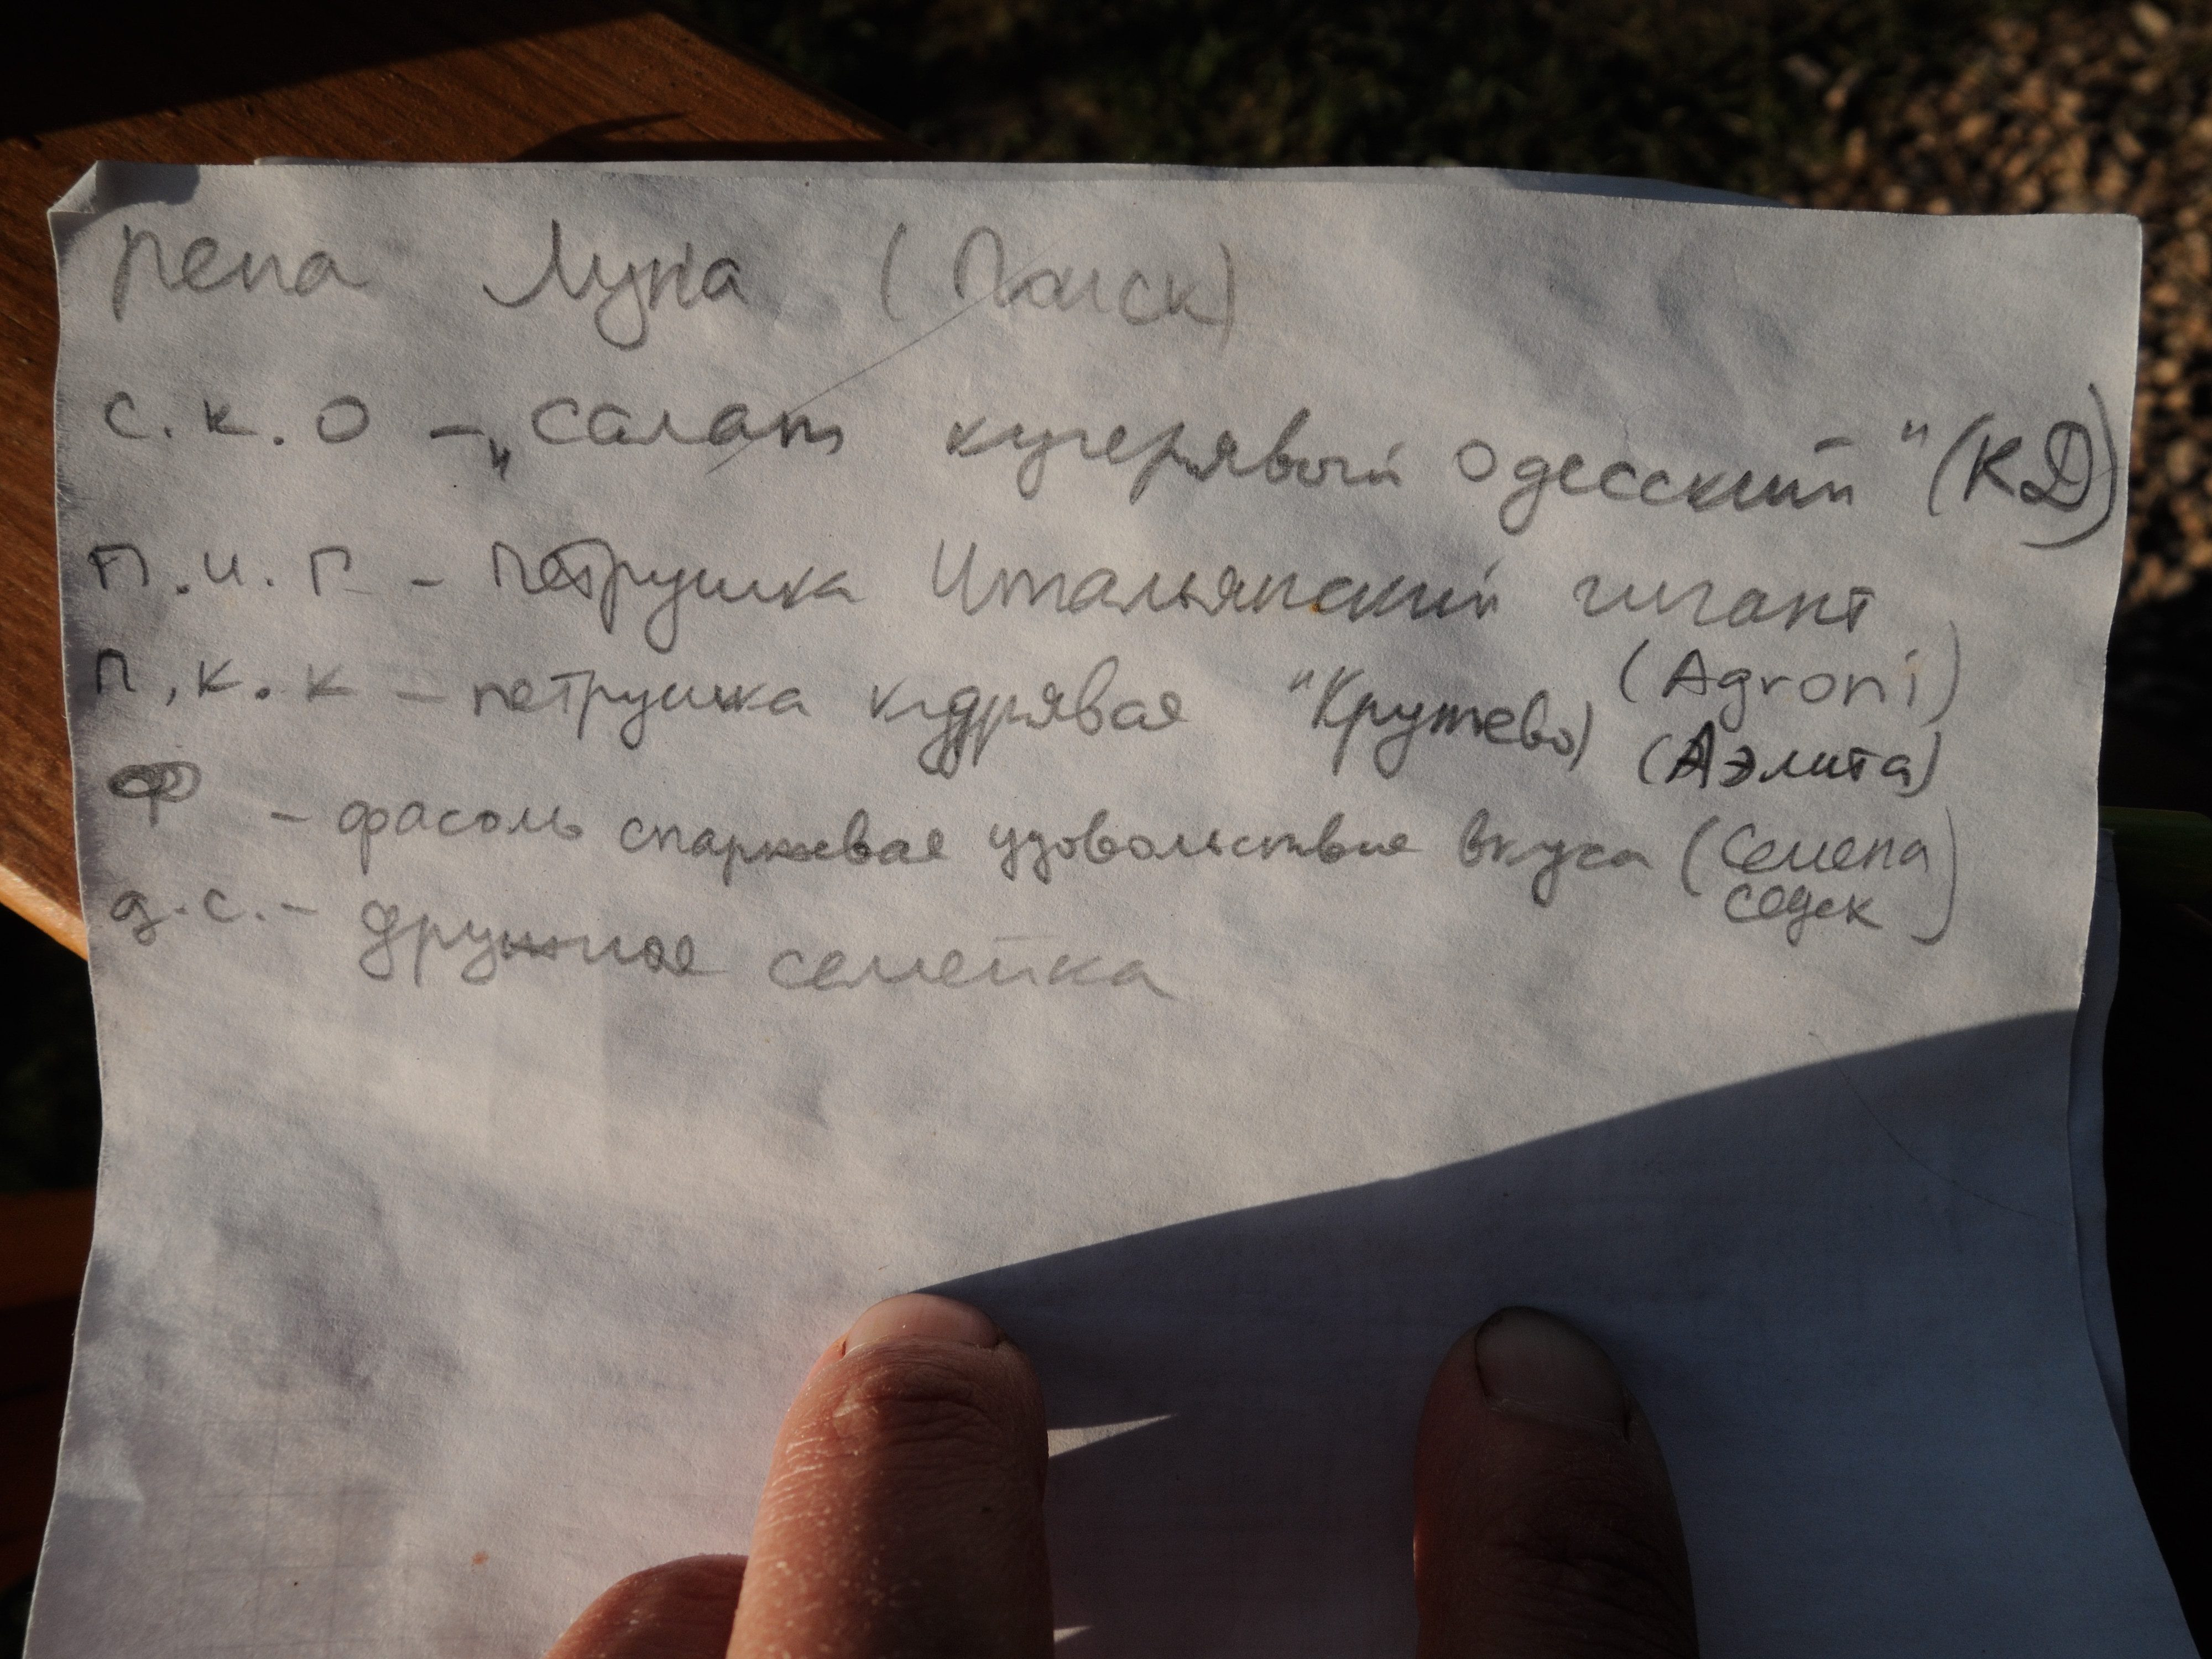 репа Луна (Поиск)
с.к.о - „салат кучерявый одесский" (КД)
п.и.г - петрушка Итальянский гигант
(Agroni)
п.к.к - петрушка кудрявая "Кружево) (Аэлита)
ф - фасоль спаржевая удовольствие вкуса (Семена
седек)
д.с. - дружная семейка